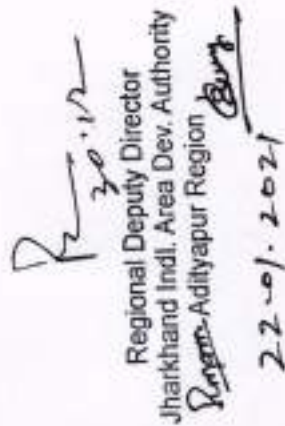 30.12
Regional Deputy Director
Jharkhand Indl. Area Dev. Authority
Adityapur Region
22-01-2021